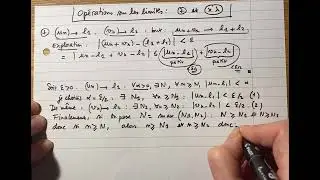 Opérations sur les limites : ① et ×λ
① (un) → l1, (vn) → l2 : but (un + vn) → l1 + l2
Exploration : |un + vn - (l1 + l2)| < ε
= |un - l1 + vn - l2| ≤ |un - l1| + |vn - l2|
petit petit
Soit ε>0. (un) → l1 : ∀α>0, ∃N, ∀n ≥ N, |un - l1| < α
je choisis α = ε/2 : ∃ N1, ∀n ≥ N1 : |un - l1| < ε/2 (1)
De même : (vn) → l2 : ∃ N2, ∀n ≥ N2 : |vn - l2| < ε/2 (2)
Finalement, si je pose N = max(N1, N2) : N ≥ N1 et N ≥ N2
donc si n ≥ N, alors n ≥ N1 et n ≥ N2 donc